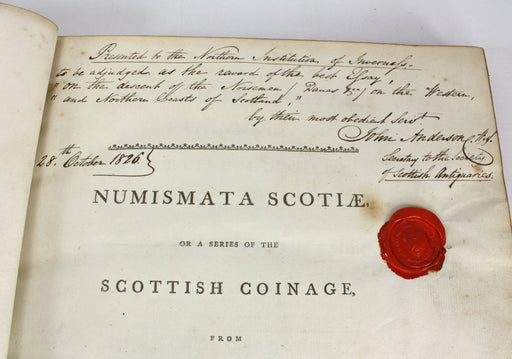 Presented to the Northern Institution of Inverness.
to be adjudged as the reward of the best Essay,
"on the descent of the Norsemen / Danes &c / on the Western,
"and Northern Coasts of Scotland,"
by their most obedient Servt
John Anderson, W.S.
28th October 1826
Secretary to the Society
of Scottish Antiquaries.
NUMISMATA SCOTIÆ,
OR A SERIES OF THE
SCOTTISH COINAGE,
FROM